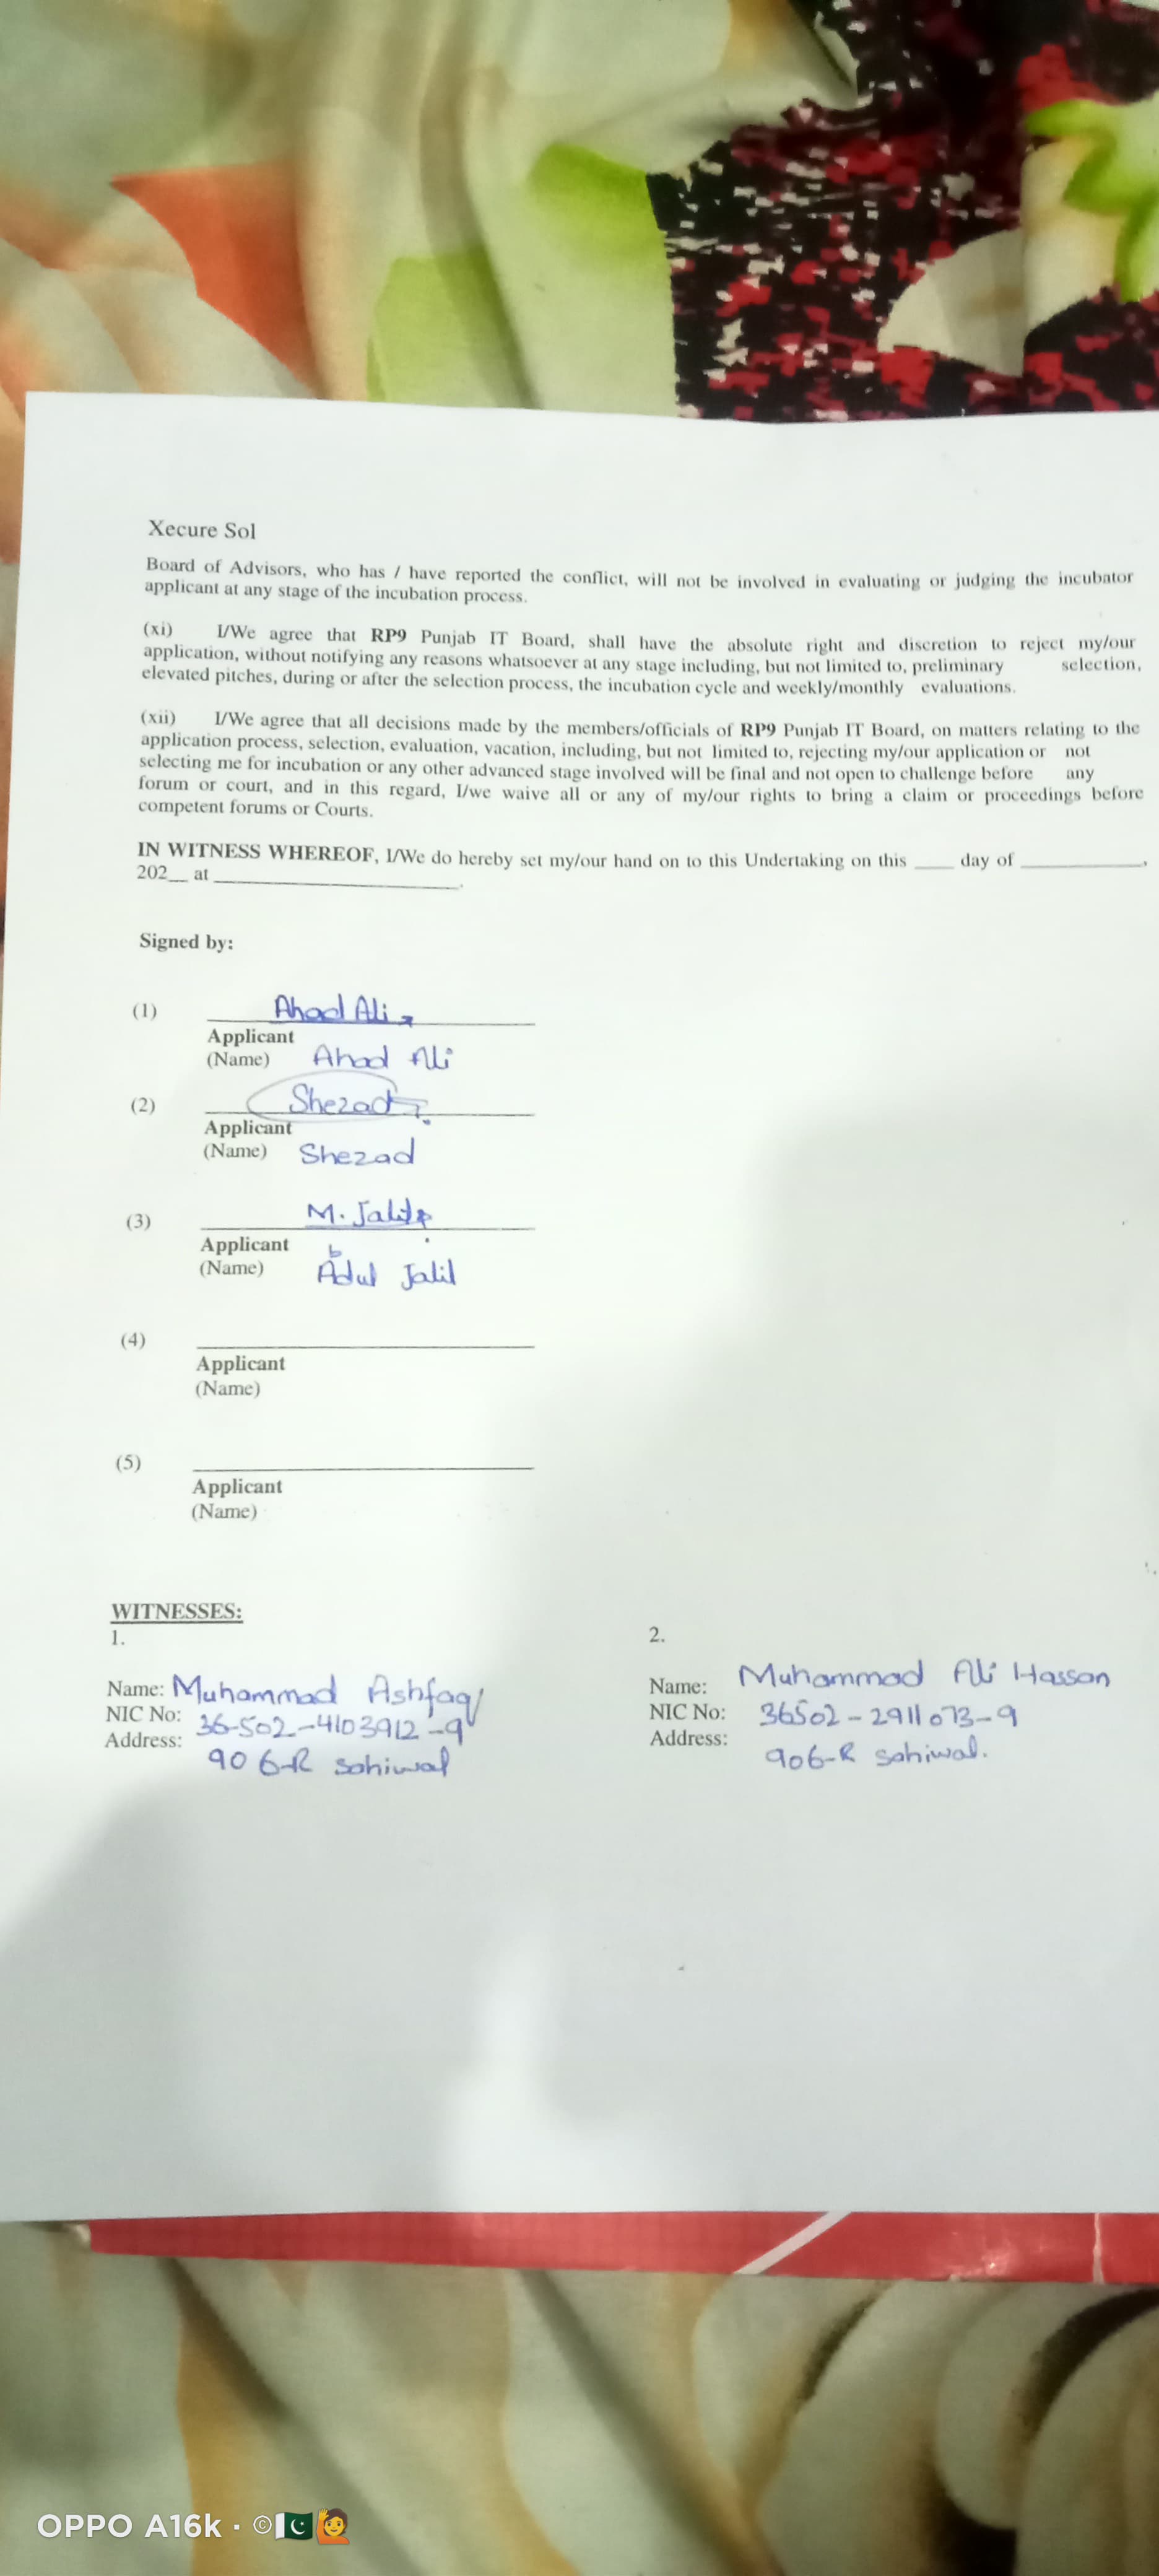 Xecure Sol
Board of Advisors, who has / have reported the conflict, will not be involved in evaluating or judging the incubator
applicant at any stage of the incubation process.
(xi) I/We agree that RP9 Punjab IT Board, shall have the absolute right and discretion to reject my/our
application, without notifying any reasons whatsoever at any stage including, but not limited to, preliminary selection,
elevated pitches, during or after the selection process, the incubation cycle and weekly/monthly evaluations.
(xii) I/We agree that all decisions made by the members/officials of RP9 Punjab IT Board, on matters relating to the
application process, selection, evaluation, vacation, including, but not limited to, rejecting my/our application or not
selecting me for incubation or any other advanced stage involved will be final and not open to challenge before any
forum or court, and in this regard, I/we waive all or any of my/our rights to bring a claim or proceedings before
competent forums or Courts.
IN WITNESS WHEREOF, I/We do hereby set my/our hand on to this Undertaking on this ____ day of ____________,
202__ at ________________________.
Signed by:
(1) Ahad Ali
Applicant
(Name) Ahad Ali
(2) Shezad
Applicant
(Name) Shezad
(3) M. Jalil
Applicant
(Name) Abdul Jalil
(4)
Applicant
(Name)
(5)
Applicant
(Name)
WITNESSES:
1.
Name: Muhammad Ashfaq
NIC No: 36-502-4103912-9
Address:
906-R Sahiwal
2.
Name: Muhammad Ali Hassan
NIC No: 36502-2911073-9
Address:
906-R Sahiwal.
OPPO A16k · ©🇵🇰🙋